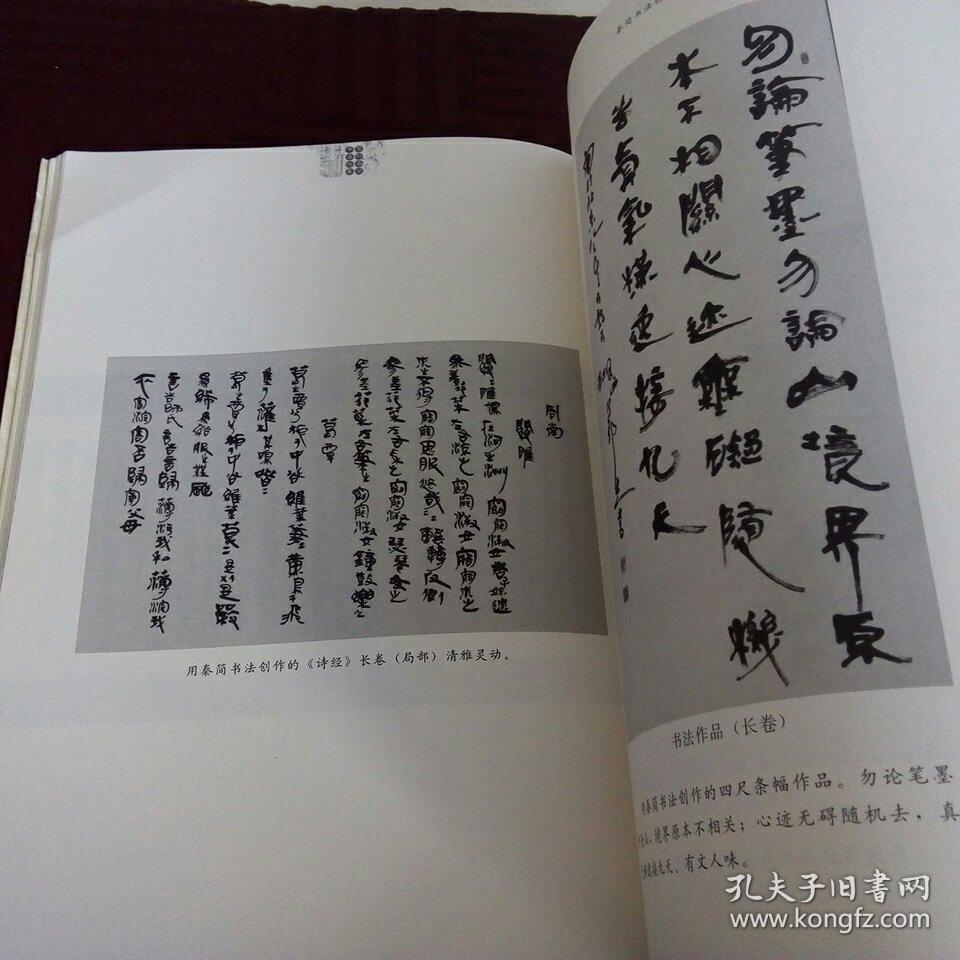 周南
關雎
關〻雎鳩在河之洲窈窕淑女君子好逑
參差荇菜左右流之窈窕淑女寤寐求之
求之不得寤寐思服悠哉〻輾轉反側
參差荇菜左右采之窈窕淑女
參差荇菜左右芼之窈窕淑女鐘鼓樂之
葛覃
葛之覃兮施于中谷維葉萋〻黃鳥于飛
集于灌木其鳴喈〻
葛之覃兮施于中谷維葉莫〻是刈是
服之
言告師氏言告言歸薄污我私薄澣我
害澣害否歸寧父母
用秦简书法创作的《诗经》长卷（局部）清雅灵动。
秦简书法
勿論筆墨勿論山境界原
本不相關心迹無礙隨機
去真氣遥接九天
书法作品（长卷）
用秦简书法创作的四尺条幅作品。勿论笔墨
山，境界原本不相关；心迹无碍随机去，真
遥接九天。有文人味。
孔夫子旧书网
www.kongfz.com